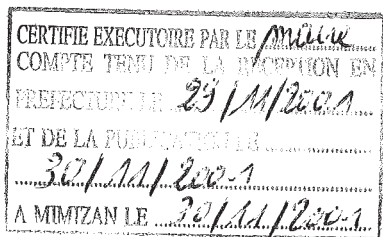 CERTIFIE EXECUTOIRE PAR LE maire
COMPTE TENU DE LA RECEPTION EN
PREFECTURE LE 29/11/2001
ET DE LA PUBLICATION LE
30/11/2001
A MIMIZAN LE 30/11/2001